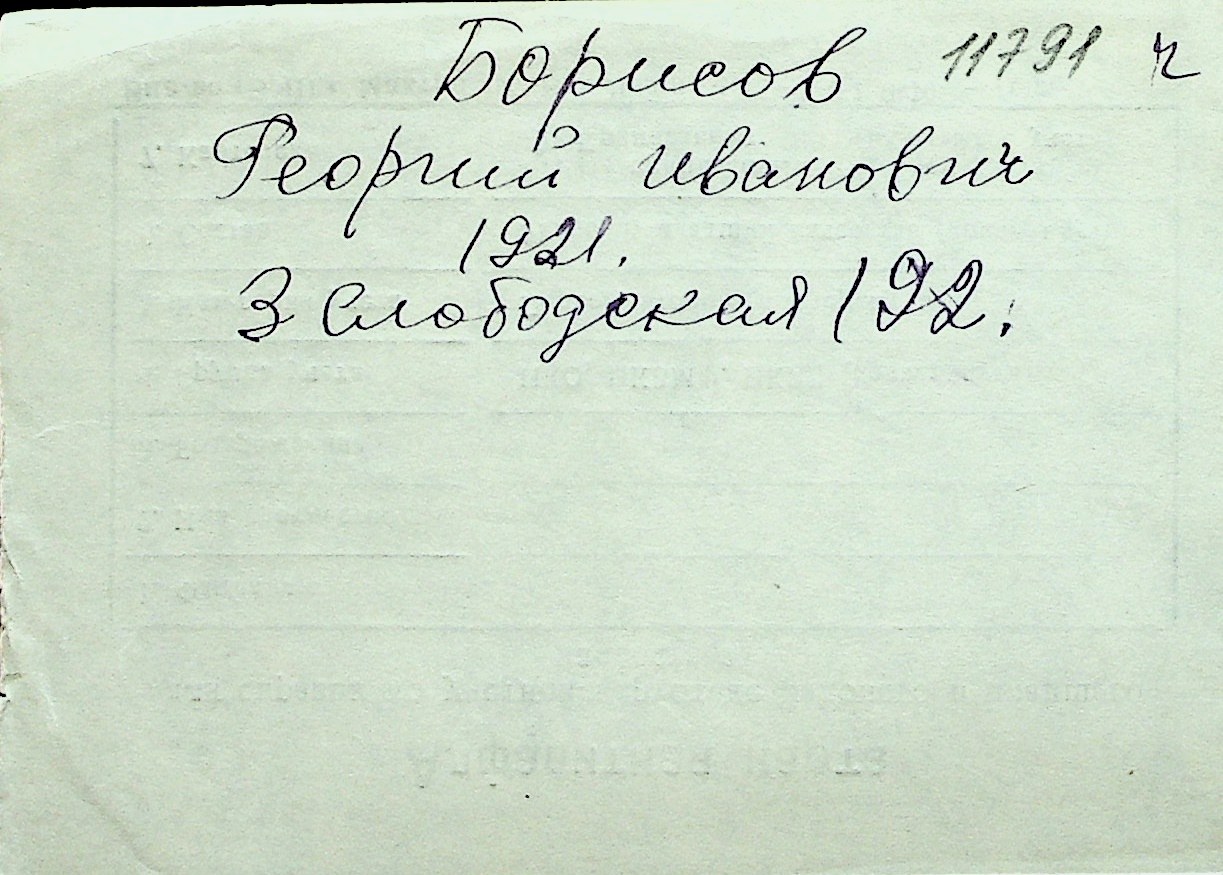 Борисов 11791 ч
Георгий Иванович
1921.
3 Слободская 192.